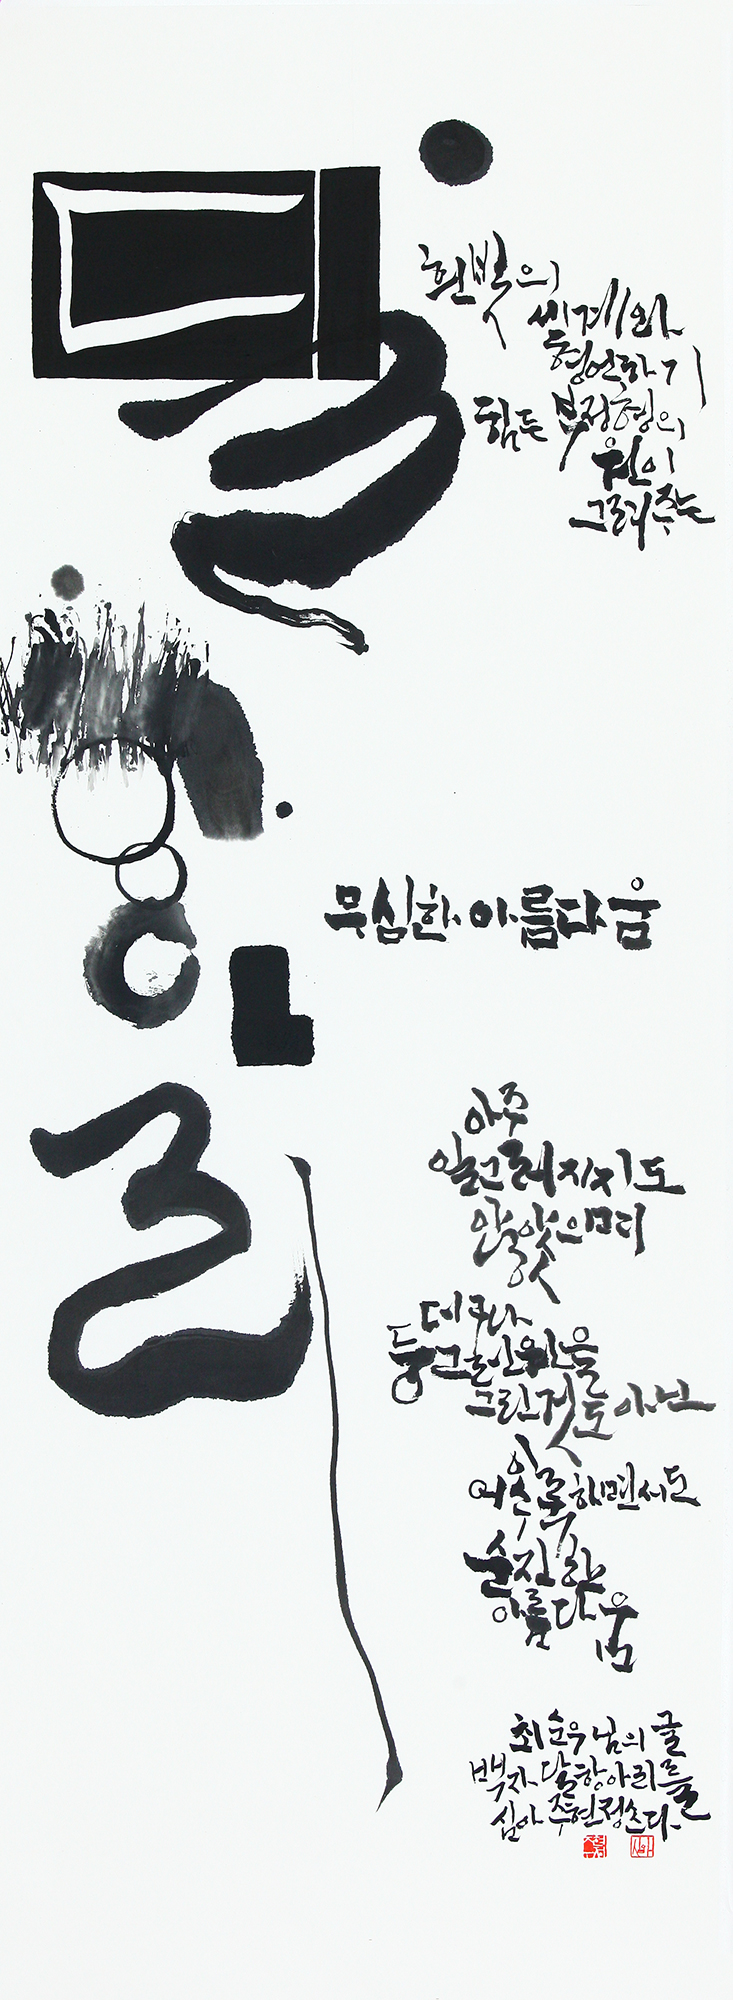 달
항아
리
흰빛의
세계와
형언하기
힘든 부정형의
원이
그려주는
무심한 아름다움
아주
일그러지지도
않았으며
더구나
둥그런 원을
그린 것도 아닌
어수룩하면서도
순진한
아름다움
최순우님의 글
백자 달항아리를
심아 주현정 쓰다.